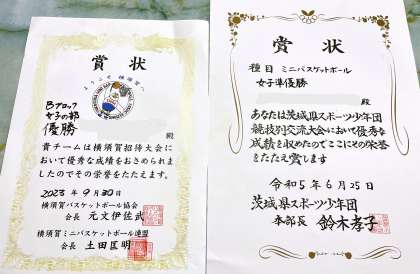 賞状
ようこそ横須賀へ
Bブロック
女子の部
優勝
殿
貴チームは横須賀招待大会に
おいて優秀な成績をおさめられ
ましたのでその栄誉をたたえます。
2023年9月30日
横須賀バスケットボール協会
会長 元文伊佐武
横須賀ミニバスケットボール連盟
会長 土田匡明
賞状
種目 ミニバスケットボール
女子準優勝
殿
あなたは茨城県スポーツ少年団
競技別交流大会において優秀な
成績を収めたのでここにその栄誉
をたたえ賞します
令和5年6月25日
茨城県スポーツ少年団
本部長 鈴木孝子